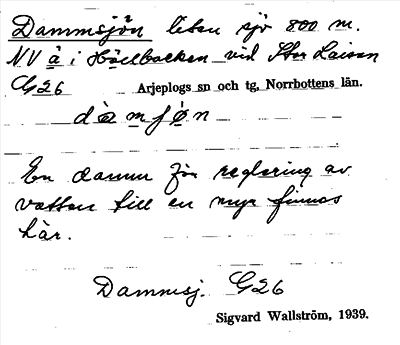 Dammsjön liten sjö 800 m.
NV å i Hällbacken vid Stor Laisan
G26 Arjeplogs sn och tg, Norrbottens län.
dàmʃøn
En damm för reglering av
vatten till en myr finnas
här.
Dammsj. G26
Sigvard Wallström, 1939.